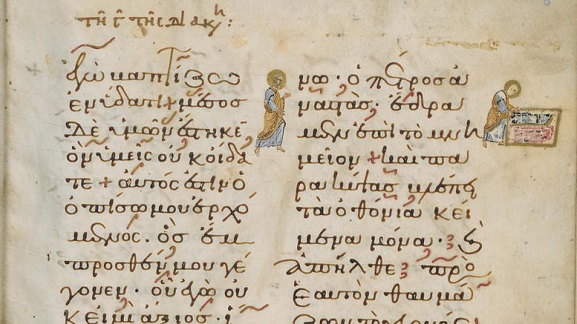 τῇ γ τῆς διακη:
ἐγὼ βαπτίζω
ἐν ὕδατι + μέσος
δὲ ὑμῶν ἕστηκε
ὃν ὑμεῖς οὐκ οἴδα
τε + αὐτός ἐστιν ὁ
ὀπίσω μου ἐρχό
μενος. ὃς ἔμ
προσθέν μου γέ
γονεν. οὗ ἐγὼ οὐ
κ εἰμὶ ἄξιος. ἵ
ρῶ. ὁ πέτρος ἀ
ναστὰς. ἔδρα
μεν ἐπὶ τὸ μνη
μεῖον + καὶ πα
ρακύψας βλέπει
τὰ ὀθόνια κεί
μενα μόνα. καὶ
ἀπῆλθε πρὸ
ἑαυτὸν θαυμά